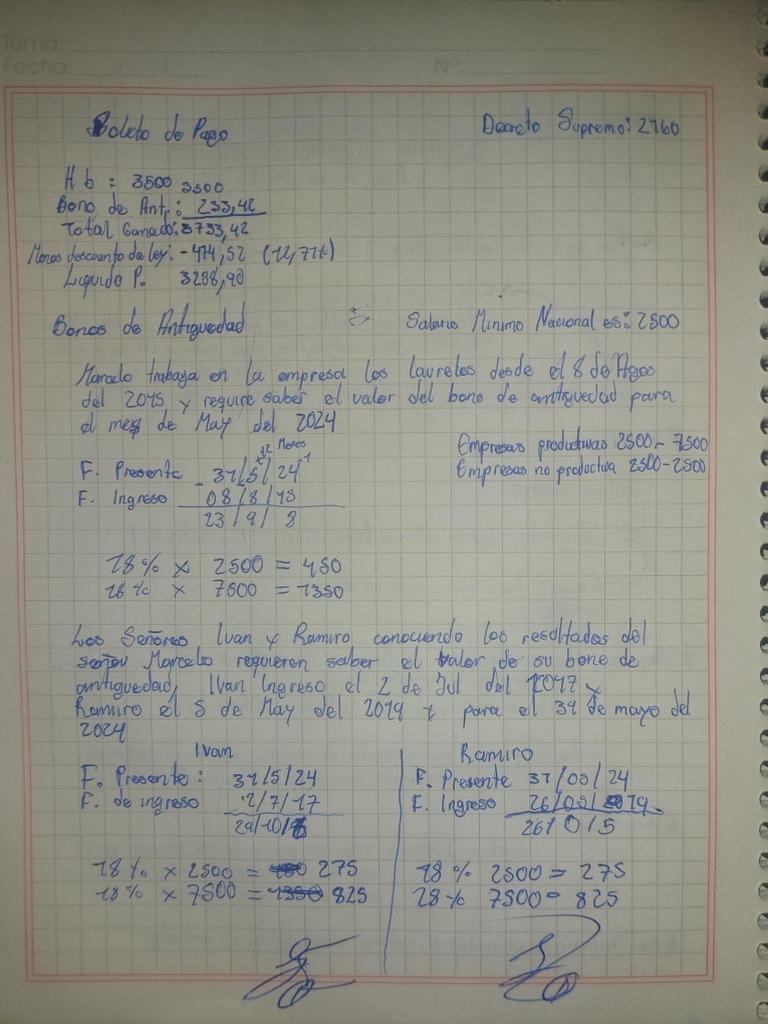 Tema:
Fecha: / / Nº:
Boleto de Pago Decreto Supremo: 2160
H b : 3500 3500
Bono de Ant: 233,42
Total Ganado: 3733,42
Menos descuento de ley: - 474,52 (12,71%)
Liquido P. 3258,90
Bonos de Antiguedad Salario Minimo Nacional es: 2500
Marcelo trabaja en la empresa los laureles desde el 8 de Agos
del 2015 y require saber el valor del bono de antiguedad para
el mes de May del 2024
Empresas productivas 2500 - 7500
Empresas no productiva 2500 - 2500
+12 Meses
F. Presente 31/5/24 -1
F. Ingreso - 08/8/15
23/9/8
18% x 2500 = 450
18% x 7500 = 1350
Los Señores Ivan y Ramiro conociendo los resultados del
señor Marcelo requieren saber el valor de su bono de
antiguedad, Ivan Ingreso el 2 de Jul del 2017 y
Ramiro el 5 de May del 2019 y para el 31 de mayo del
2024
Ivan Ramiro
F. Presente : 31/5/24
F. de ingreso 2/7/17
29/10/6
18% x 2500 = 275
18% x 7500 = 825
F. Presente 31/05/24
F. Ingreso 26/05/19
26/0/5
18% 2500 = 275
18% 7500 = 825